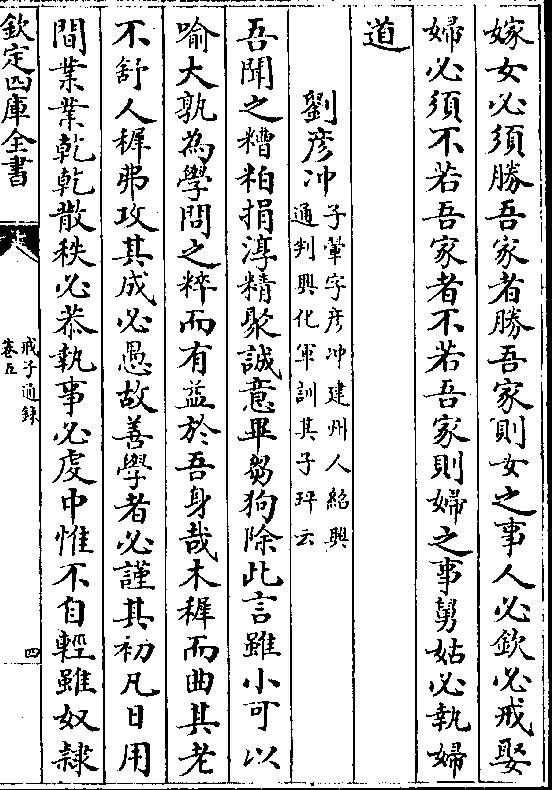 嫁女必須勝吾家者勝吾家則女之事人必欽必戒娶
婦必須不若吾家者不若吾家則婦之事舅姑必執婦
道
劉彦冲子翬字彦冲建州人紹興
通判興化軍訓其子玶云
吾聞之糟粕捐淳精聚誠意畢芻狗除此言雖小可以
喻大孰為學問之粹而有益於吾身哉木穉而曲其老
不舒人穉弗攻其成必愚故善學者必謹其初凡日用
間業業乾乾散秩必恭執事必䖍中惟不自輕雖奴隷
欽定四庫全書
戒子通録
卷五
四